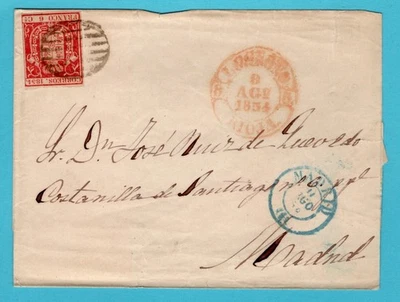 FRANCO 6 Cs
CORREOS. 1854.
9
AGº
1854
RIOJA.
Sr. Dn. José Ruiz de Quevedo
Costanilla de Santiago nº 6
MADRID
AGO
Madrid